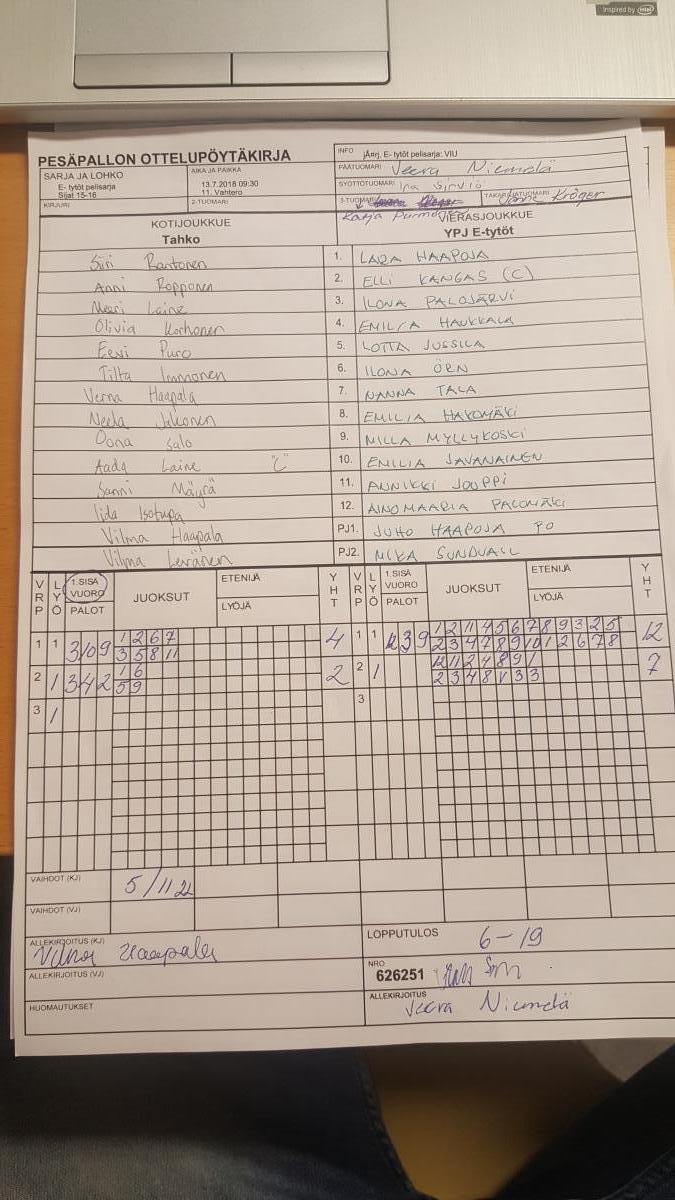 Inspired by intel
PESÄPALLON OTTELUPÖYTÄKIRJA
INFO jÄnrj, E- tytöt pelisarja: VIU
SARJA JA LOHKO
E- tytöt pelisarja
Sijat 15-16
AIKA JA PAIKKA
13.7.2018 09:30
11. Vahtero
PÄÄTUOMARI Veera Niemelä
SYÖTTÖTUOMARI Ina Sirviö
KIRJURI
2-TUOMARI
3-TUOMARI
TAKARAJATUOMARI Kröger
Katja
KOTIJOUKKUE
Tahko
VIERASJOUKKUE
YPJ E-tytöt
Siiri Rantonen 1. LARA HAAPOJA
Anni Ropponen 2. ELLI KANGAS (C)
Meeri Laine 3. ILONA PALOJÄRVI
Olivia Korhonen 4. EMILIA HAUKKALA
Eevi Puro 5. LOTTA JUSSILA
Tilta Immonen 6. ILONA ÖRN
Verna Haapala 7. NANNA TALA
Neela Jakonen 8. EMILIA HAKOMÄKI
Oona Salo 9. MILLA MYLLYKOSKI
Aada Laine "C" 10. EMILIA SAVANAINEN
Sanni Mäyrä 11. ANNIKKI JOUPPI
Iida Isotupa 12. AINOMAARIA PALOMÄKI
Vilma Haapala PJ1. JUHO HAAPOJA PO
Vilma Leivänen PJ2. MIKA SUNDVALL
VRP LYÖ 1.SISÄ VUORO PALOT JUOKSUT ETENIJÄ LYÖJÄ YHT VRP LYÖ 1.SISÄ VUORO PALOT JUOKSUT ETENIJÄ LYÖJÄ YHT
1 1 3 10 9 1 2 6 7 4 1 1 12 3 9 1 2 11 4 5 6 7 8 9 3 2 5 12
3 5 8 11 2 3 4 7 8 9 10 1 2 6 7 8
2 1 3 4 2 1 6 2 2 1 12 11 2 4 8 9 1 7
5 9 2 3 4 8 1 3 3
3 1 3
VAIHDOT (KJ) 5/11
VAIHDOT (VJ)
ALLEKIRJOITUS (KJ)
Vilma Haapala
LOPPUTULOS 6-19
ALLEKIRJOITUS (VJ)
NRO
626251
HUOMAUTUKSET
ALLEKIRJOITUS
Veera Niemelä